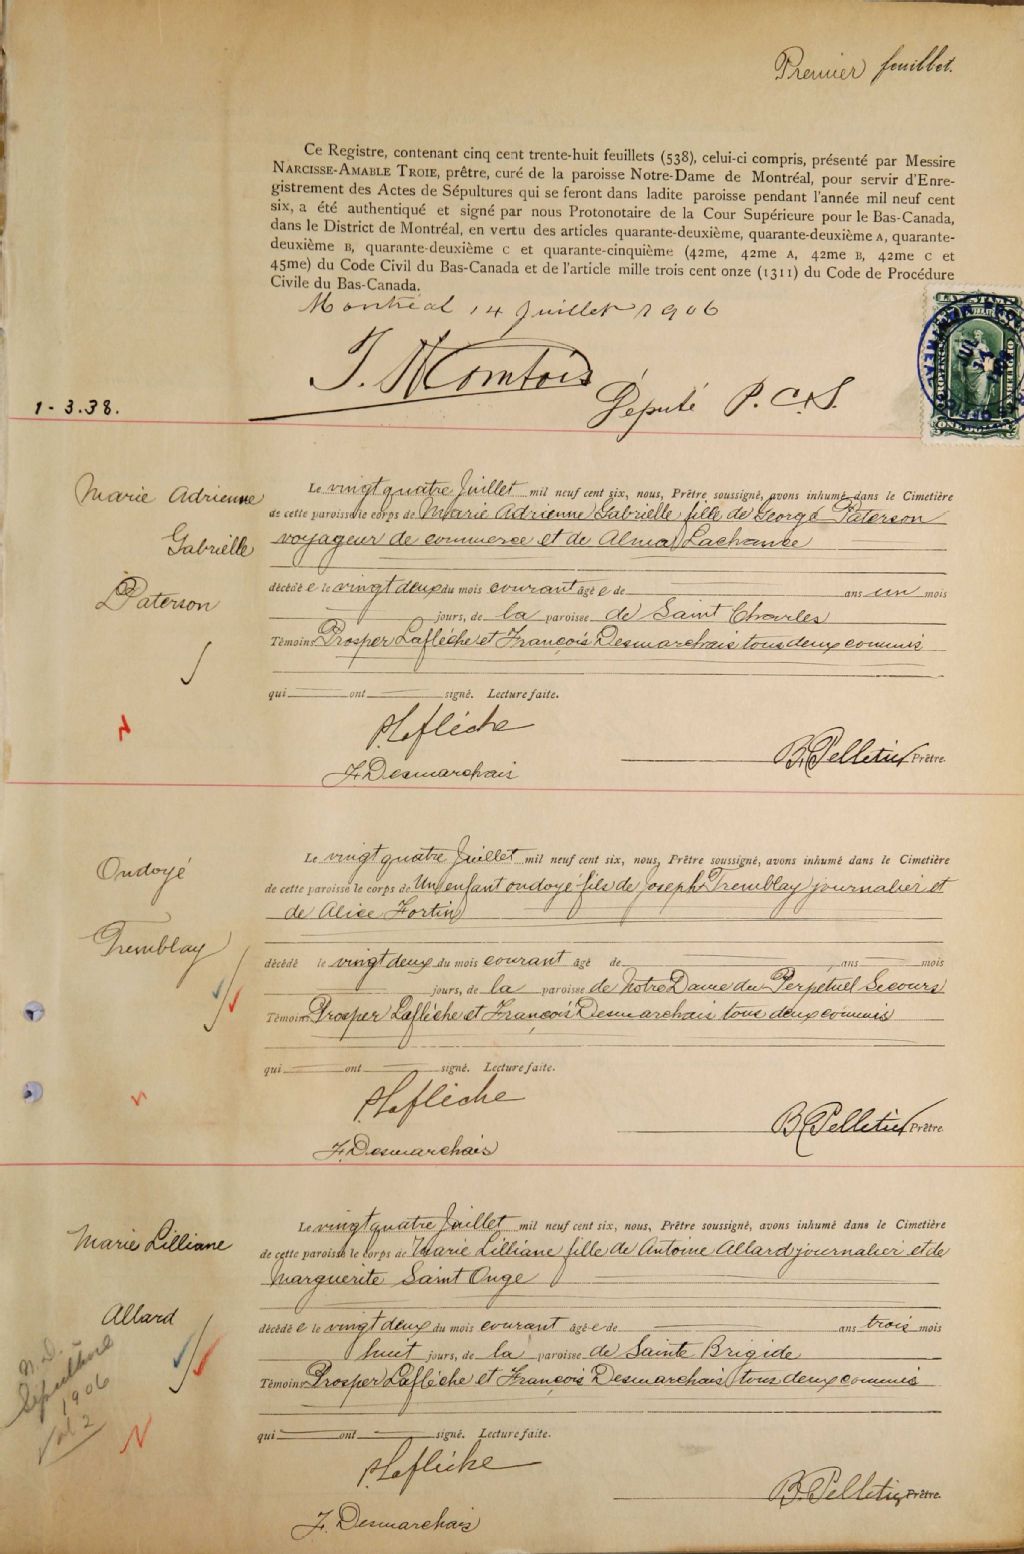 Premier feuillet.
Ce Registre, contenant cinq cent trente-huit feuillets (538), celui-ci compris, présenté par Messire
NARCISSE-AMABLE TROIE, prêtre, curé de la paroisse Notre-Dame de Montréal, pour servir d'Enre-
gistrement des Actes de Sépultures qui se feront dans ladite paroisse pendant l'année mil neuf cent
six, a été authentiqué et signé par nous Protonotaire de la Cour Supérieure pour le Bas-Canada,
dans le District de Montréal, en vertu des articles quarante-deuxième, quarante-deuxième A, quarante-
deuxième B, quarante-deuxième C et quarante-cinquième (42me, 42me A, 42me B, 42me C et
45me) du Code Civil du Bas-Canada et de l'article mille trois cent onze (1311) du Code de Procédure
Civile du Bas-Canada.
Montréal 14 Juillet 1906
Député P.C.S.
1-3.38.
Marie Adrienne
Gabrielle
Paterson
Le vingt quatre Juillet mil neuf cent six, nous, Prêtre soussigné, avons inhumé dans le Cimetière
de cette paroisse le corps de Marie Adrienne Gabrielle fille de George Paterson
voyageur de commerce et de Alma Lachance
décédée le vingt deux du mois courant âgée de ans un mois
jours, de la paroisse de Saint Charles
Témoins Prosper Laflèche et François Desmarchais tous deux commis
qui ont signé. Lecture faite.
P. Laflèche
B. Pelletier Prêtre.
F. Desmarchais
Ondoyé
Tremblay
Le vingt quatre Juillet mil neuf cent six, nous, Prêtre soussigné, avons inhumé dans le Cimetière
de cette paroisse le corps de Un enfant ondoyé fils de Joseph Tremblay journalier et
de Alice Fortin
décédé le vingt deux du mois courant âgé de ans mois
jours, de la paroisse de Notre Dame du Perpetuel Secours
Témoins Prosper Laflèche et François Desmarchais tous deux commis
qui ont signé. Lecture faite.
P. Laflèche
B. Pelletier Prêtre
F. Desmarchais
Marie Lilliane
Allard
N.D.
Sépulture
1906
Vol 2
Le vingt quatre Juillet mil neuf cent six, nous, Prêtre soussigné, avons inhumé dans le Cimetière
de cette paroisse le corps de Marie Lilliane fille de Antoine Allard journalier et de
Marguerite Saint Onge
décédée le vingt deux du mois courant âgée de ans trois mois
huit jours, de la paroisse de Sainte Brigide
Témoins Prosper Laflèche et François Desmarchais tous deux commis
qui ont signé. Lecture faite.
P. Laflèche
B. Pelletier Prêtre.
F. Desmarchais